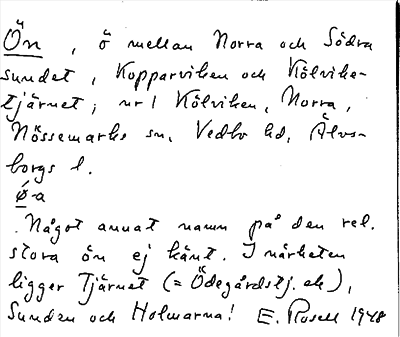 Ön, ö mellan Norra och Södra
sundet, Kopparviken och Kölvike-
tjärnet; nr 1 Kölviken, Norra,
Nössemarks sn, Vedbo hd, Älvs-
borgs l.
ǿ-a
Något annat namn på den rel.
stora ön ej känt. I närheten
ligger Tjärnet (= Ödegårdstj. ek),
Sunden och Holmarna! E. Rosell 1948